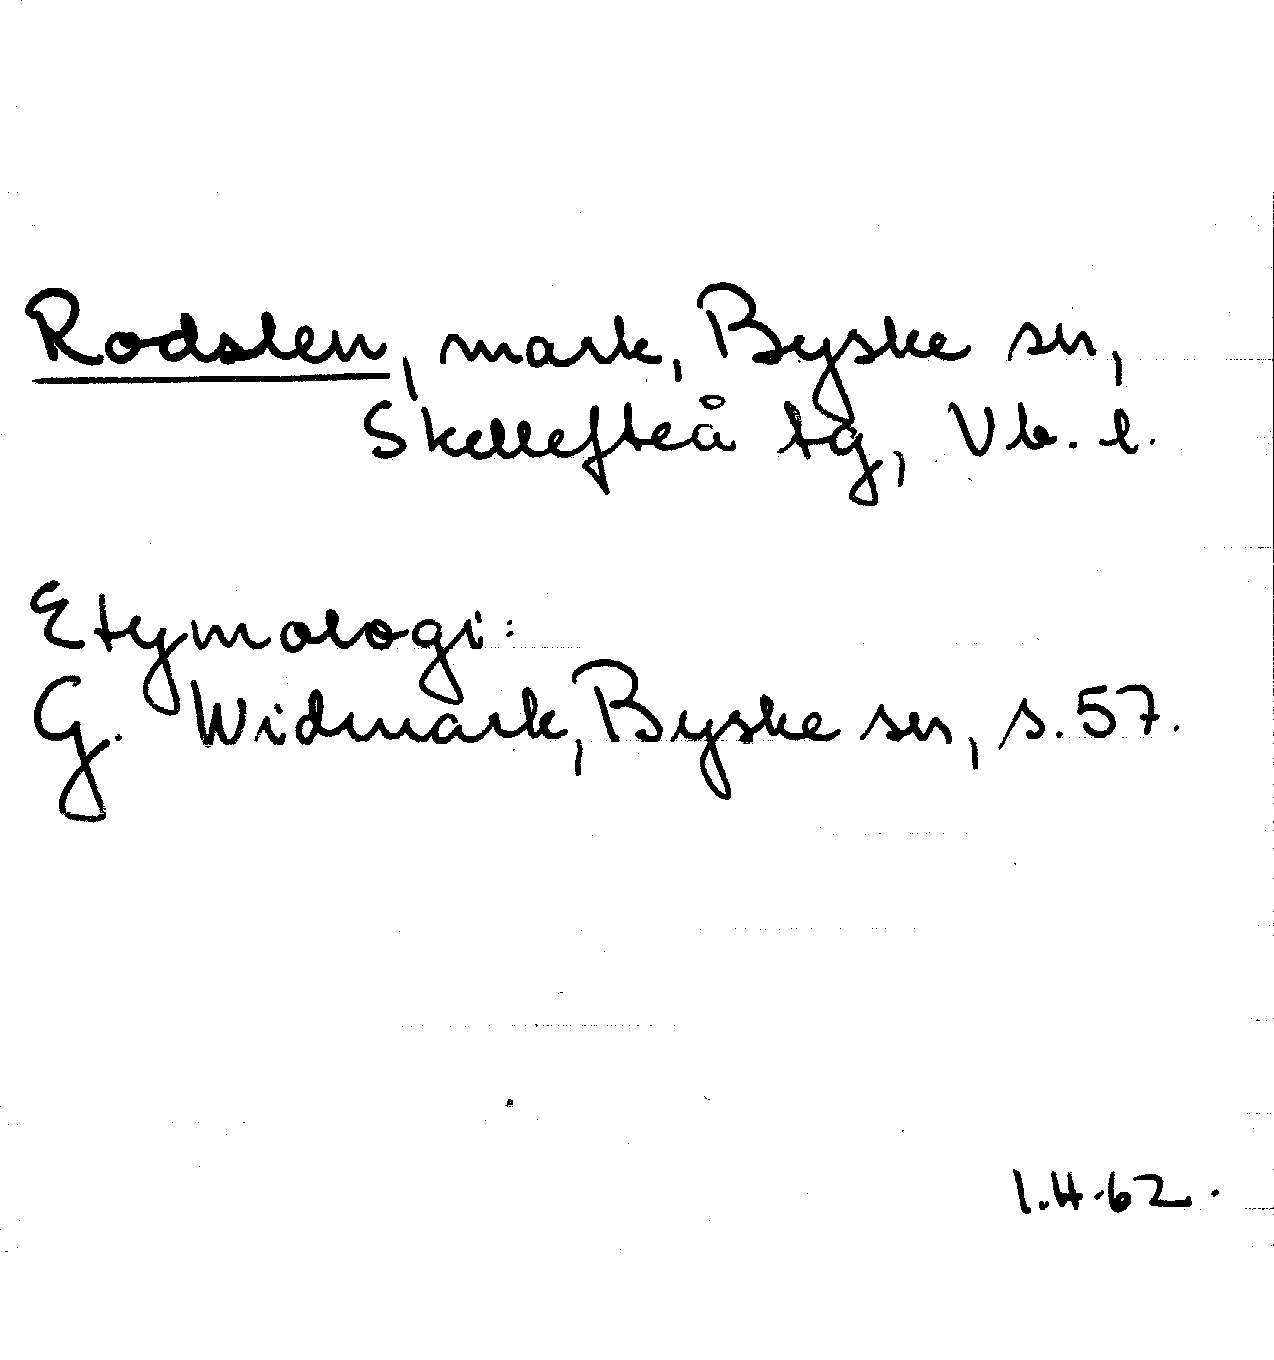 Rodslen, mark, Byske sn,
Skellefteå tg, Vb. l.
Etymologi:
G. Widmark, Byske sn, s. 57.
I.H. 62.